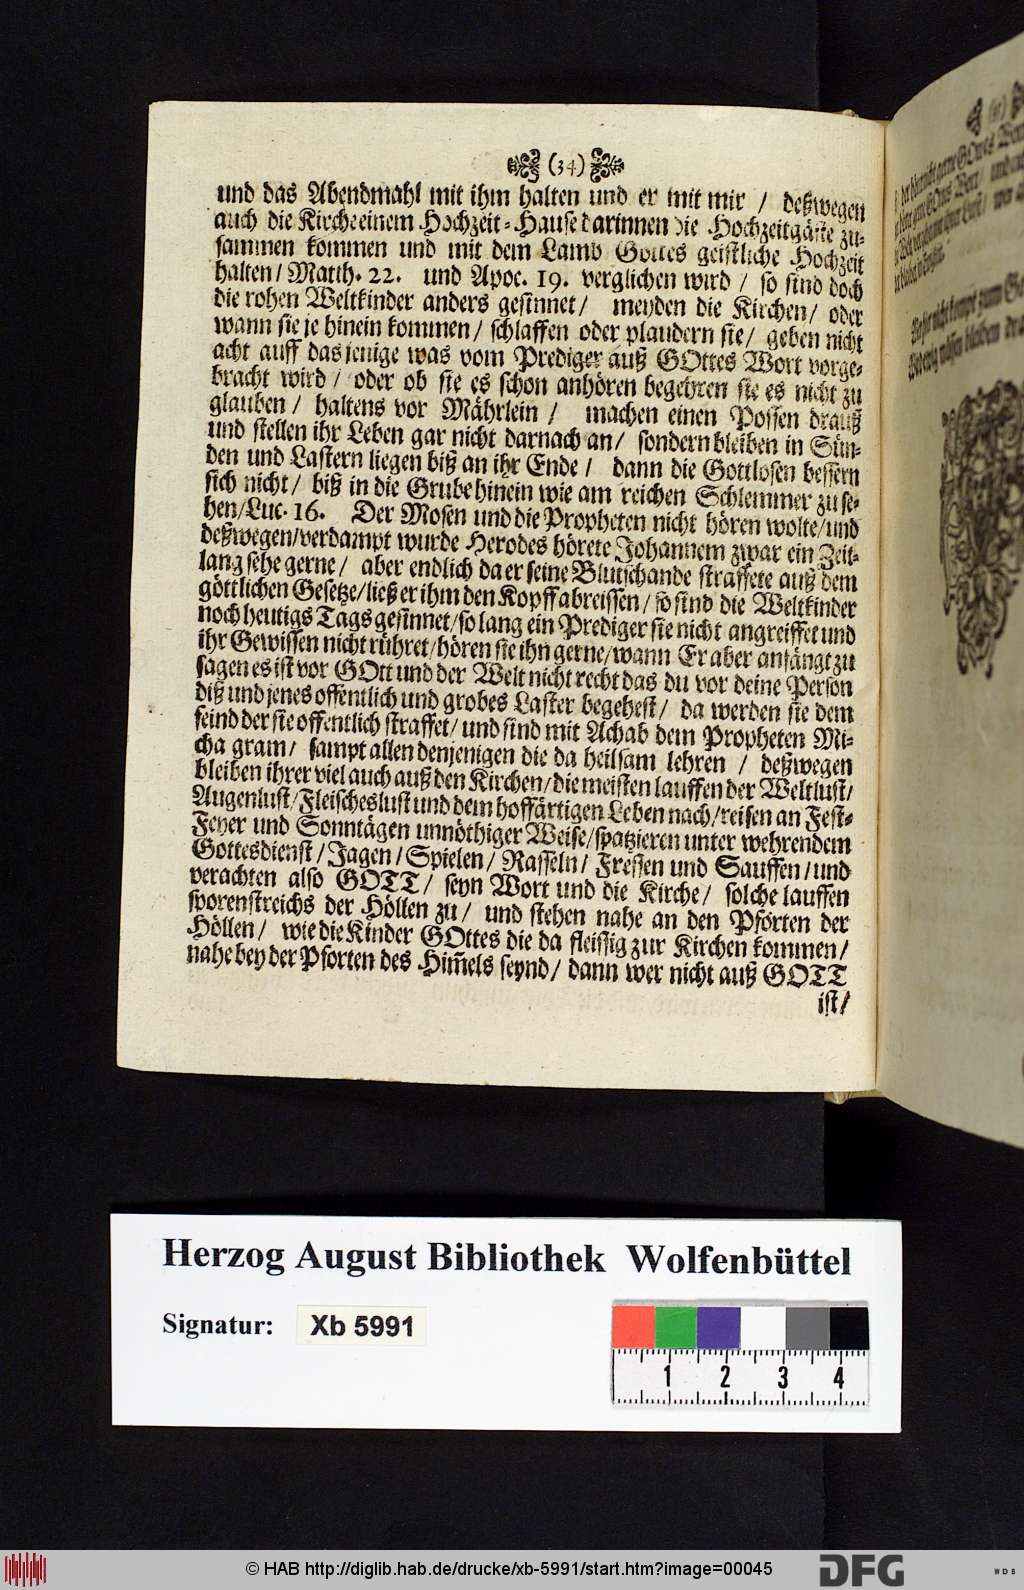 (34)
und das Abendmahl mit ihm halten und er mit mir / deßwegen
auch die Kirche einem Hochzeit-Hause darinnen die Hochzeitgäste zu-
sammen kommen und mit dem Lamb Gottes geistliche Hochzeit
halten / Matth. 22. und Apoc. 19. verglichen wird / so sind doch
die rohen Weltkinder anders gesinnet / meyden die Kirchen / oder
wann sie je hinein kommen / schlaffen oder plaudern sie / geben nicht
acht auff dasjenige was vom Prediger auß GOttes Wort vorge-
bracht wird / oder ob sie es schon anhören begehren sie es nicht zu
glauben / haltens vor Mährlein / machen einen Possen drauß
und stellen ihr Leben gar nicht darnach an / sondern bleiben in Sün-
den und Lastern liegen biß an ihr Ende / dann die Gottlosen bessern
sich nicht / biß in die Grube hinein wie am reichen Schlemmer zu se-
hen / Luc. 16. Der Mosen und die Propheten nicht hören wolte / und
deßwegen / verdampt wurde Herodes hörete Johannem zwar ein Zeit-
lang sehe gerne / aber endlich da er seine Blutschande straffete auß dem
göttlichen Gesetze / ließ er ihm den Kopff abreissen / so sind die Weltkinder
noch heutigs Tags gesinnet / so lang ein Prediger sie nicht angreiffet und
ihr Gewissen nicht rühret / hören sie ihn gerne / wann Er aber anfängt zu
sagen es ist vor GOtt und der Welt nicht recht das du vor deine Person
diß und jenes offentlich und grobes Laster begehest / da werden sie dem
feind der sie offentlich straffet / und sind mit Achab dem Propheten Mi-
cha gram / sampt allen denjenigen die da heilsam lehren / deßwegen
bleiben ihrer viel auch auß den Kirchen / die meisten lauffen der Weltlust /
Augenlust / Fleischeslust und dem hoffärtigen Leben nach / reisen an Fest-
Feyer und Sonntägen unnöthiger Weise / spatzieren unter wehrendem
Gottesdienst / Jagen / Spielen / Rasseln / Fressen und Sauffen / und
verachten also GOTT / seyn Wort und die Kirche / solche lauffen
sporenstreichs der Höllen zu / und stehen nahe an den Pforten der
Höllen / wie die Kinder GOttes die da fleissig zur Kirchen kommen /
nahe bey der Pforten des Him̃els seynd / dann wer nicht auß GOTT
ist /
Herzog August Bibliothek Wolfenbüttel
Signatur: Xb 5991
1 2 3 4
© HAB http://diglib.hab.de/drucke/xb-5991/start.htm?image=00045
DFG
WDB